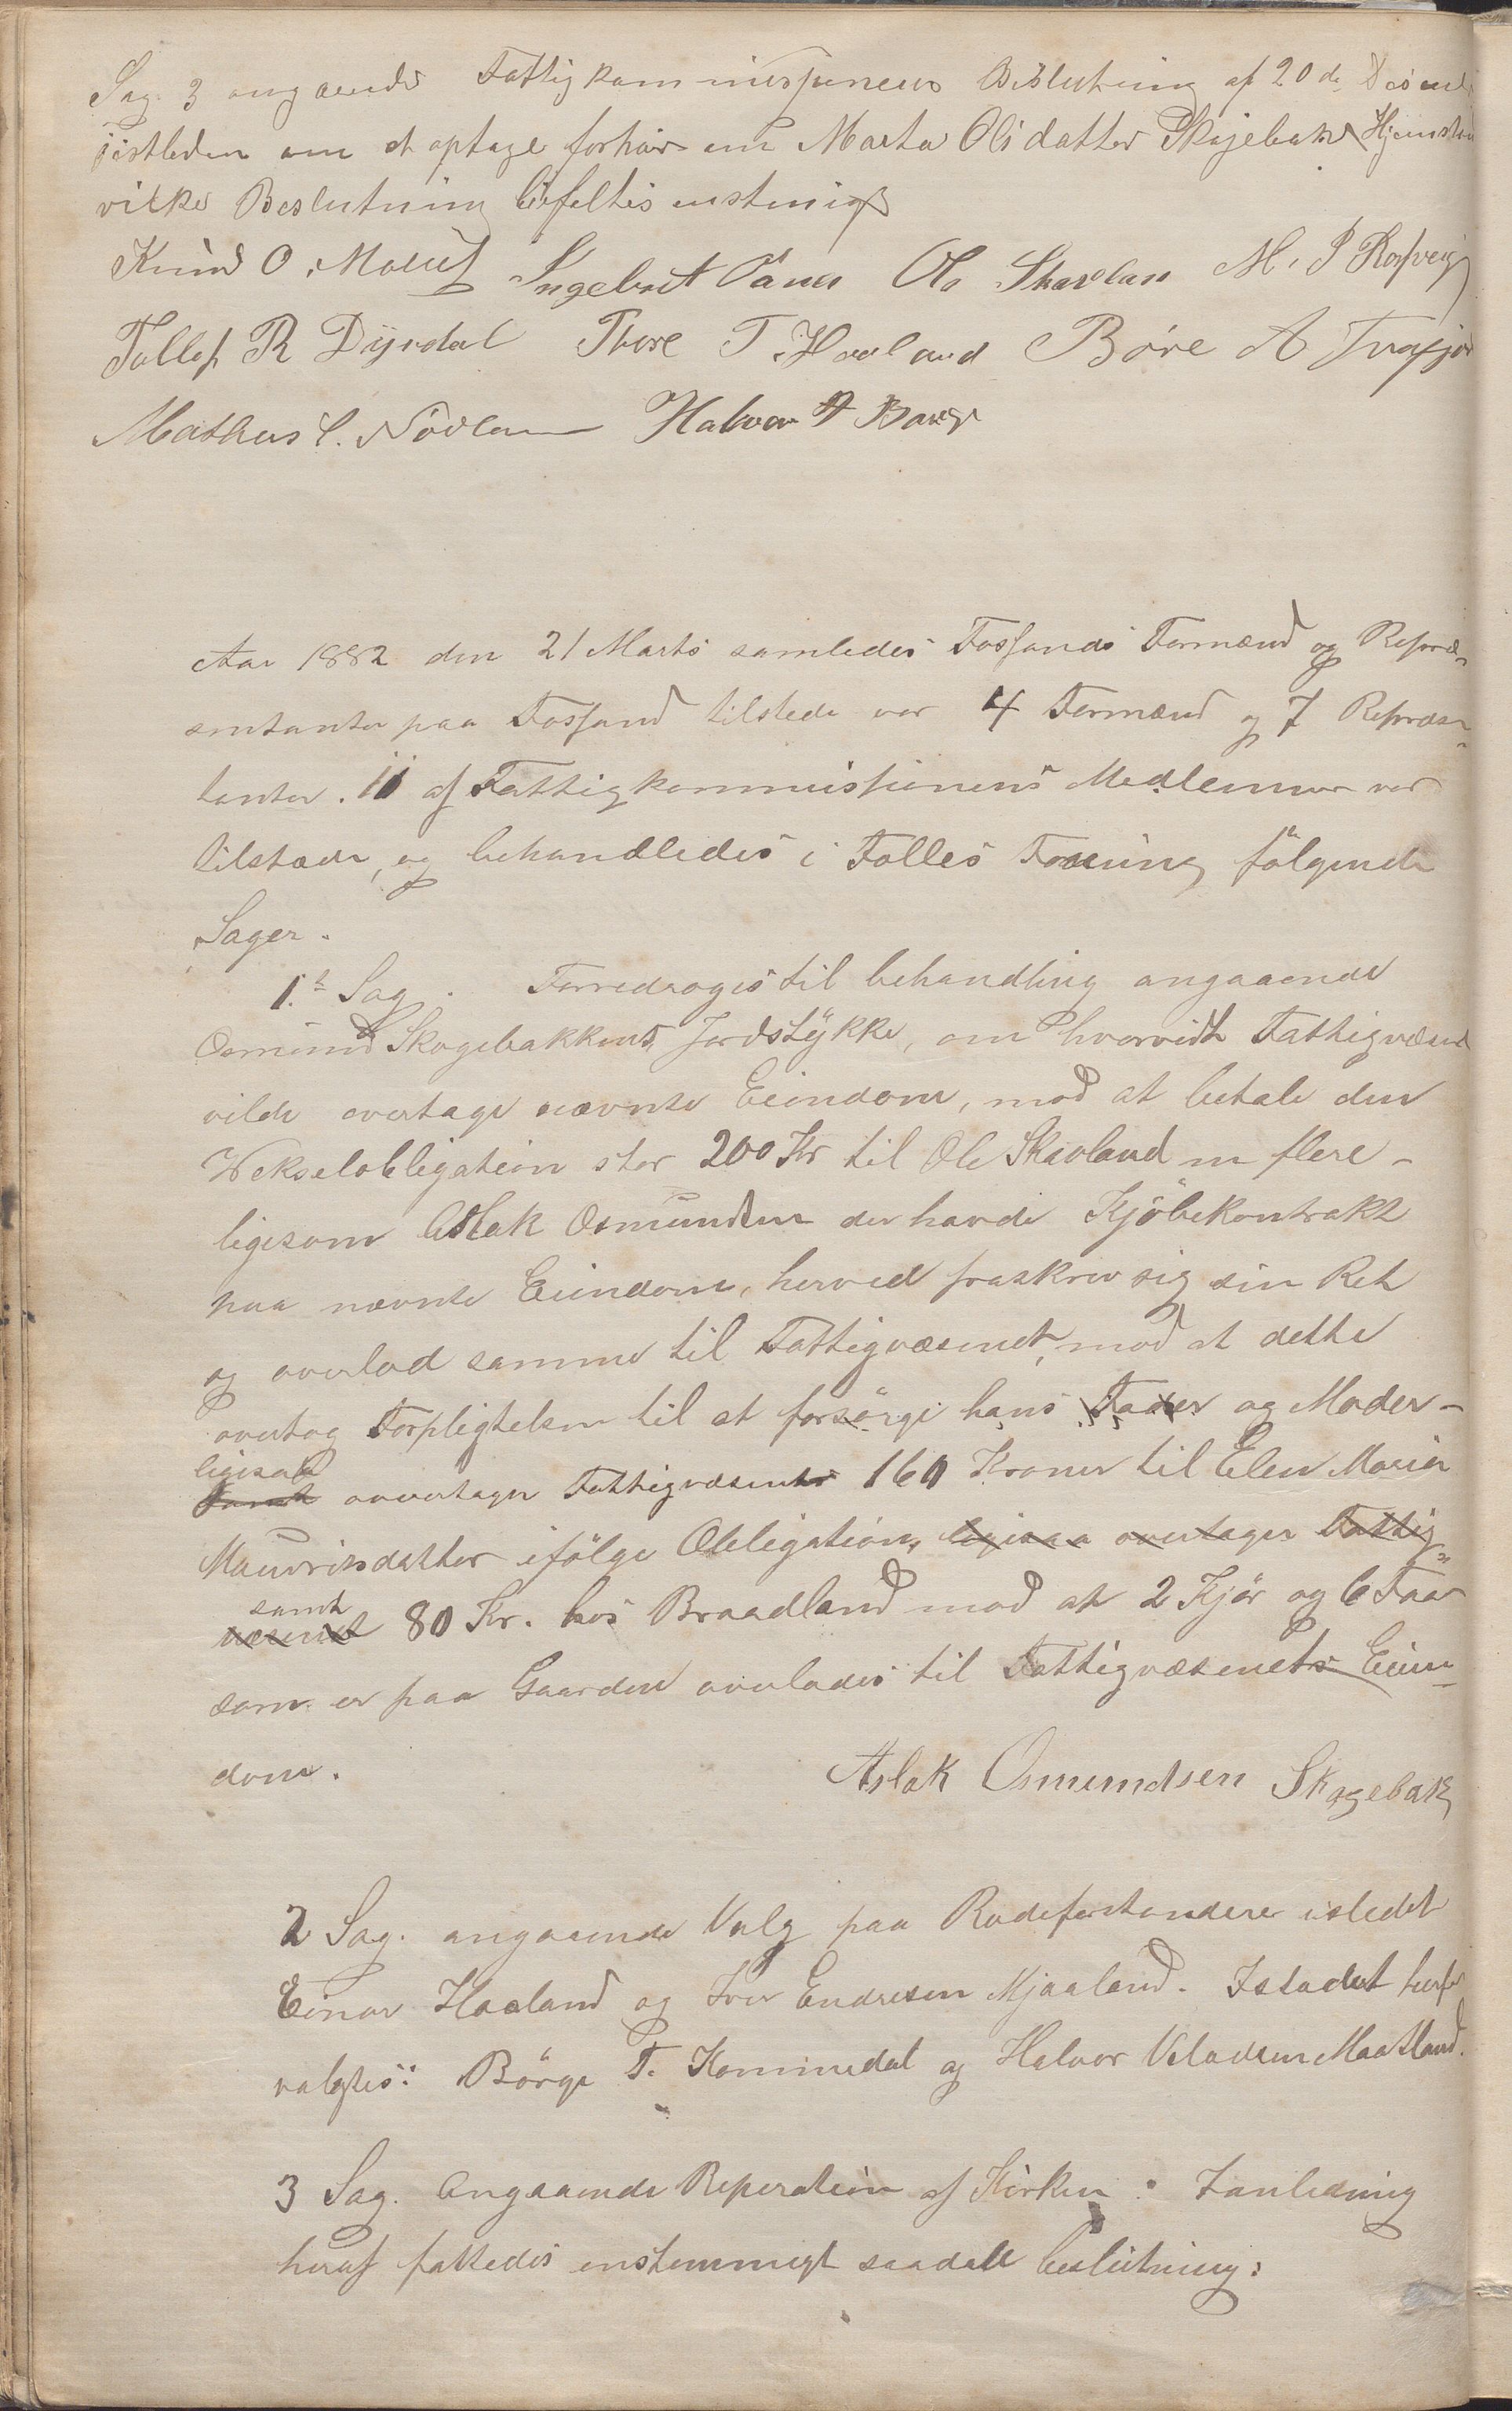 Sag. 3 angaaende Fattigkommissionens Beslutning af 20de Desemb
sistleden om at optage forhør om Marta Olsdatter Skagebaks Hjemsted
vilke Beslutning bifaltes enstemigt
Knud O. Moluf Ingebret Vaner Ole Skavlan M. P. Rosveig
Tallef R Dyrdal Thore T. Haaland Børe A Fraxfjor
Matheus P. Nødlan Halvor A Barge
Aar 1882 den 21 Marts samledes Fossands Formænd og Repræ-
sentanter paa Fossand tilstede var 4 Formænd og 7 Repræsen-
tanter. 11 af Fattigkommissionens Medlemmer var
tilstæde, og behandledes i Falles Foreening følgende
Sager.
1.ste Sag. Forredroges til behandling angaaende
Osmund Skogebakkens Jordstykke, om hvorvidt Fattigvæsenet
vilde overtage nævnte Eiendom, mod at betale den
Wekselobligation stor 200 Kr til Ole Skavland m flere -
ligesom Aslak Osmundsen der havde Kjøbekontrakt
paa nævnte Eiendom, herved fraskrev sig sin Ret
og overlod samme til Fattigvæsenet, mod at dette
overtog Forpligtelsen til at forsørge hans Fader og Moder -
ligesaa
samt overtager Fattigvæsenets 160 Kroner til Elen Maria
Mauritsdatter ifølge Obligation, ligesaa overtager Fattig-
samt
væsenet 80 Kr. hos Braadland mod at 2 Kjør og 6 Faar
som er paa Gaarden overlades til Fattigvæsenets Eien-
dom.
Aslak Osmundsen Skagebak
2 Sag. angaaende Valg paa Rodeforstandere istedet
Einar Haaland og Iver Endresen Mjaaland. Istadet herfor
valgtes: Børge T. Kommedal og Halvor Veladsen Maatland.
3 Sag. Angaaende Reperation af Kirken: I anledning
heraf fattedes enstemmigt saadan beslutning: